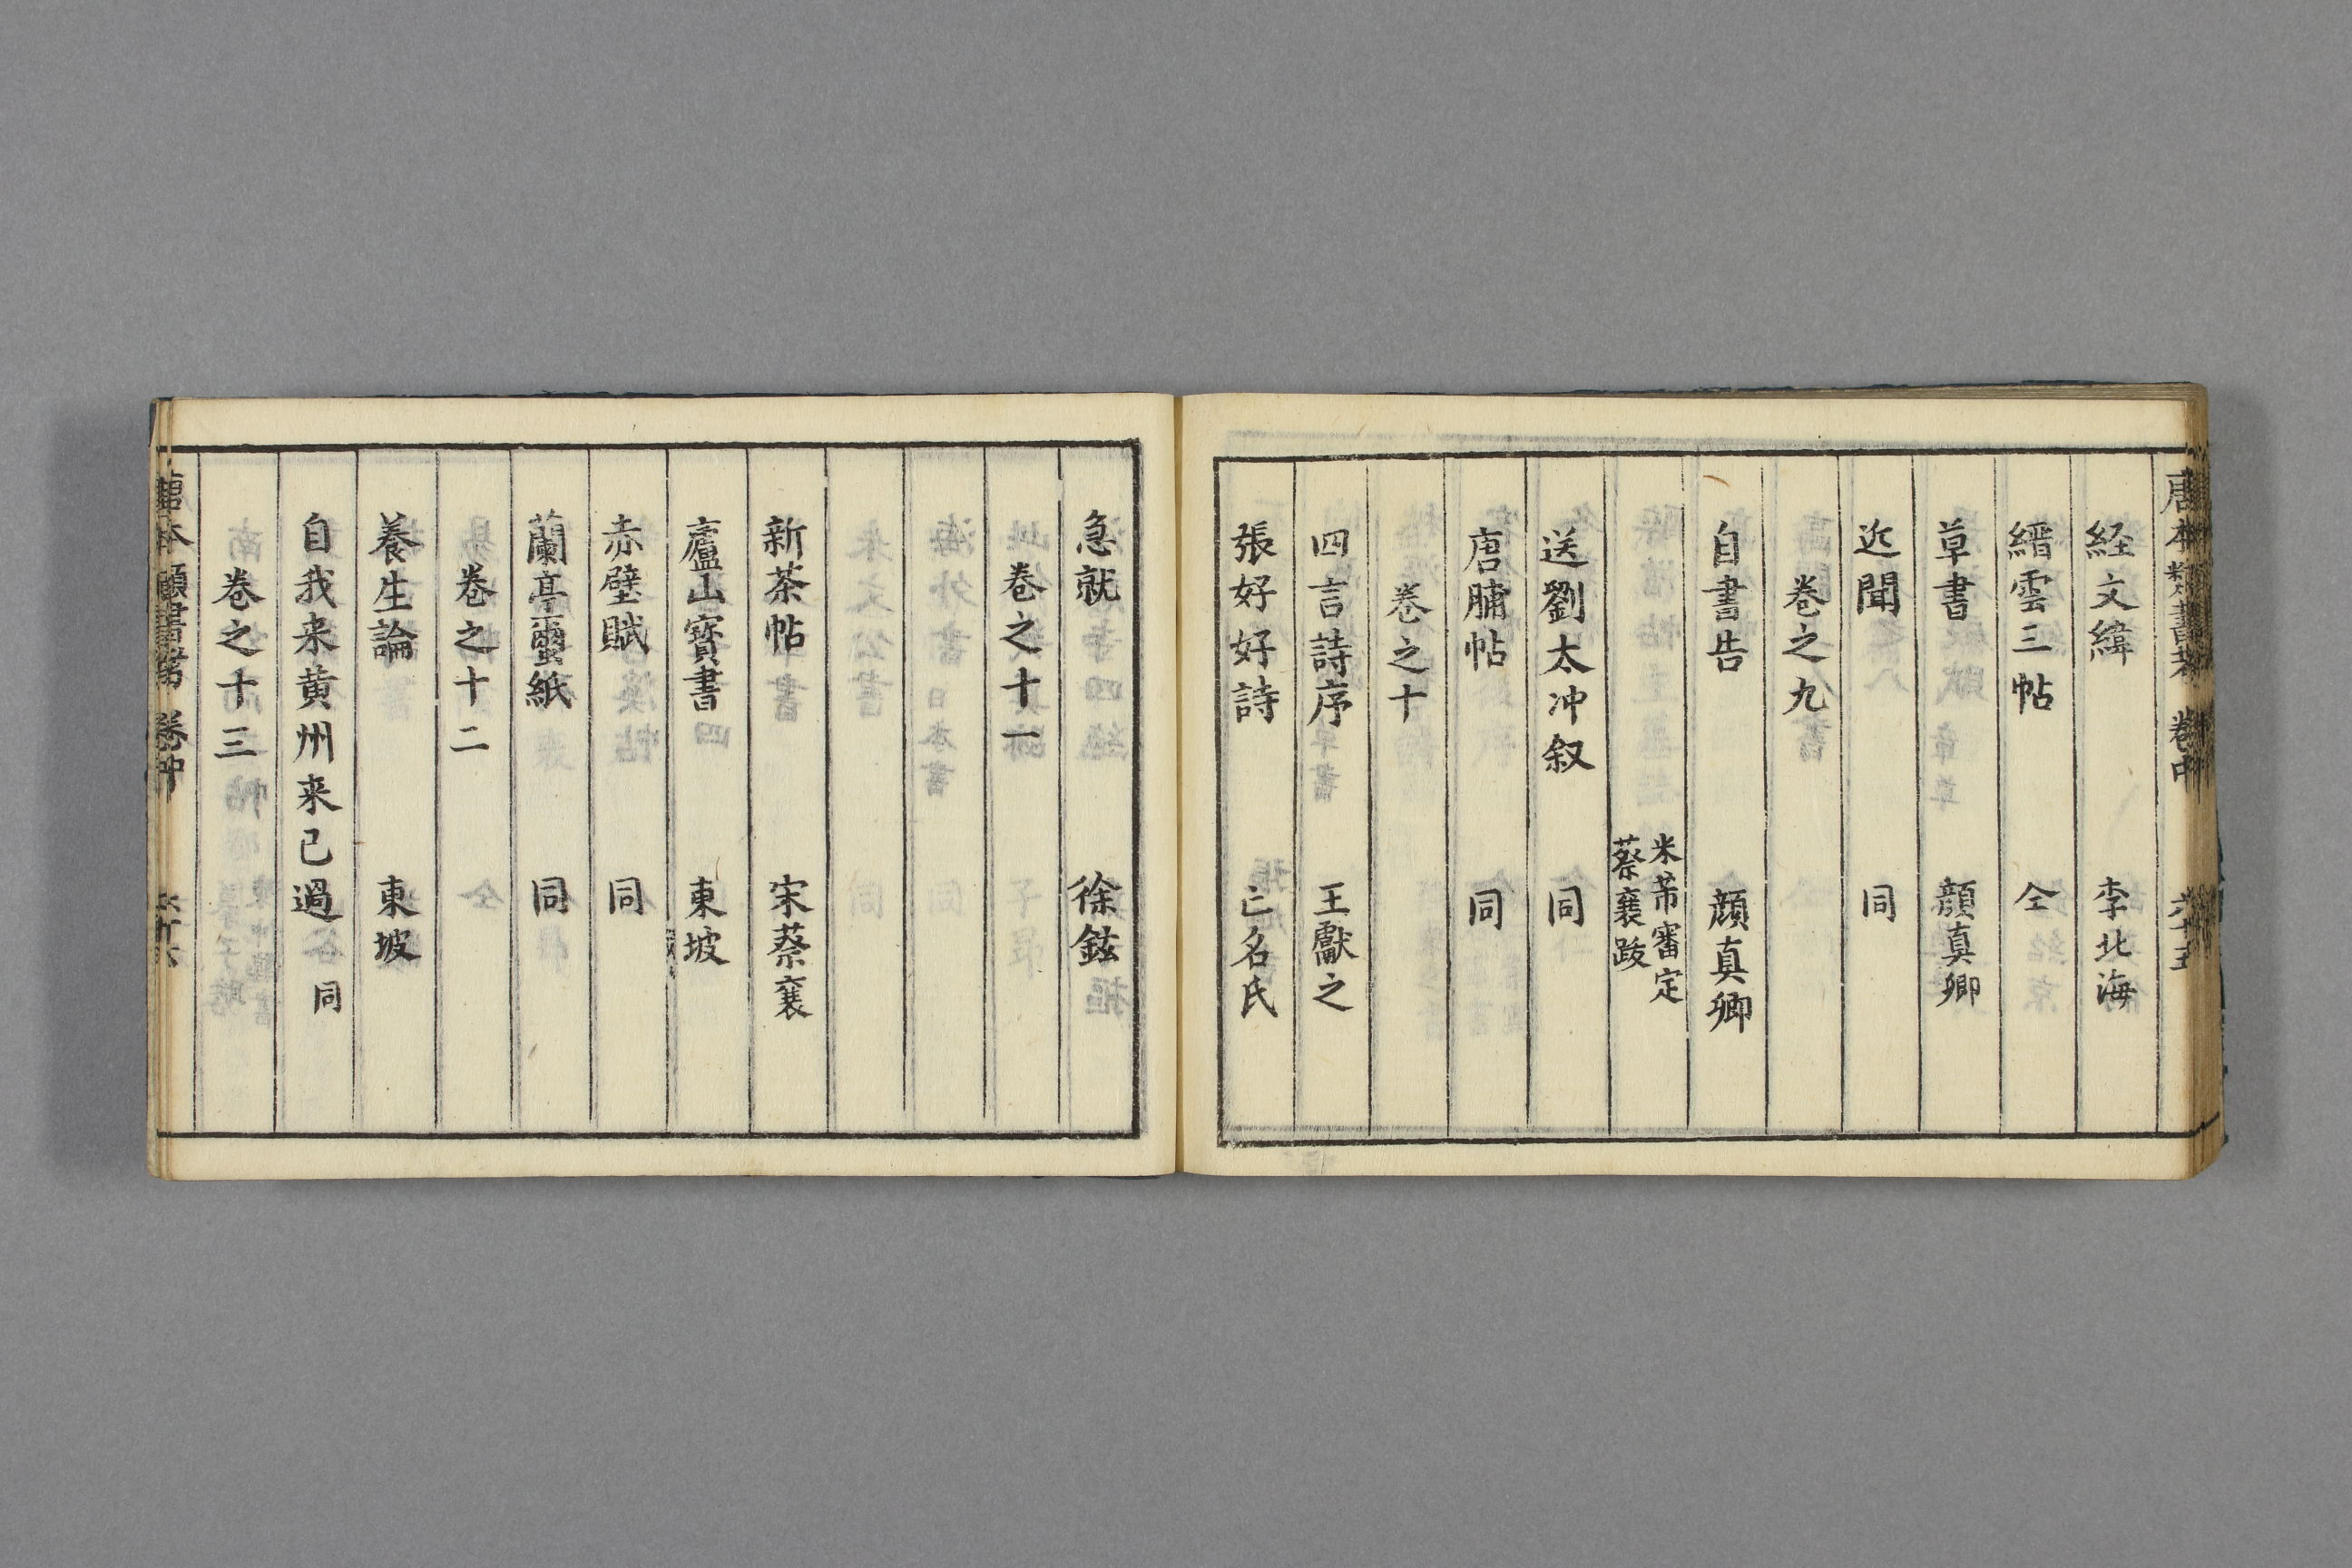 経文緯 李北海
縉雲三帖 仝
草書 顔真卿
近聞 同
卷之九
自書告 顔真卿
米芾審定
蔡襄跋
送劉太冲叙 同
唐脯帖 同
卷之十
四言詩序 王獻之
張好好詩 亡名氏
急就 徐鉉
卷之十一
新茶帖 宋蔡襄
廬山寳書 東坡
赤壁賦 同
蘭亭蠒紙 同
卷之十二
養生論 東坡
自我来黄州来已過 同
卷之十三